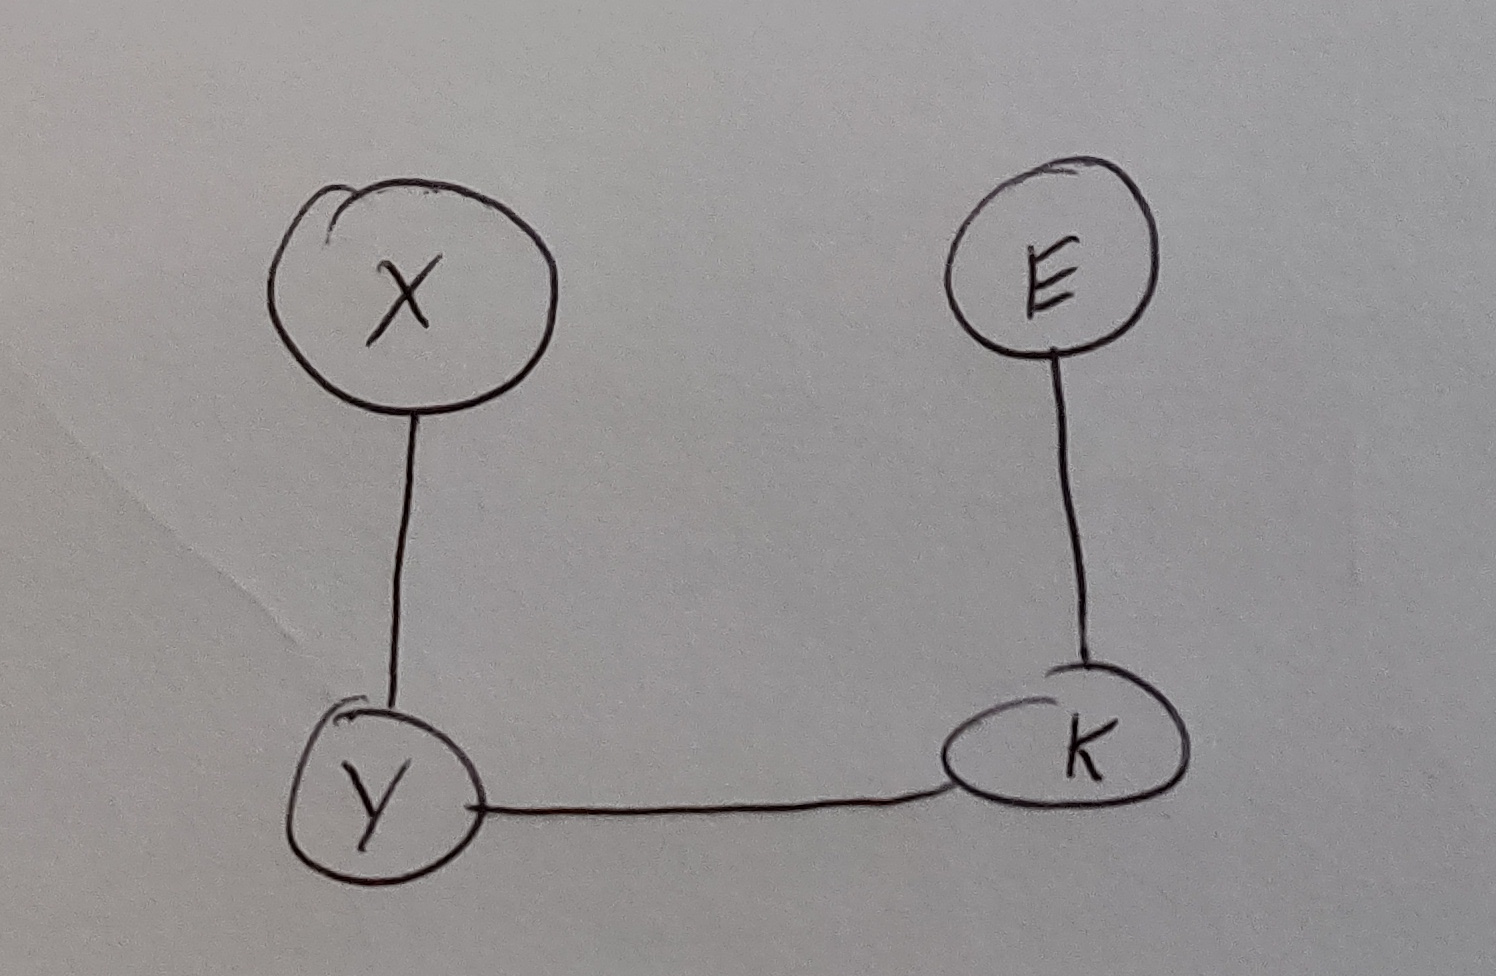 X
E
Y
K